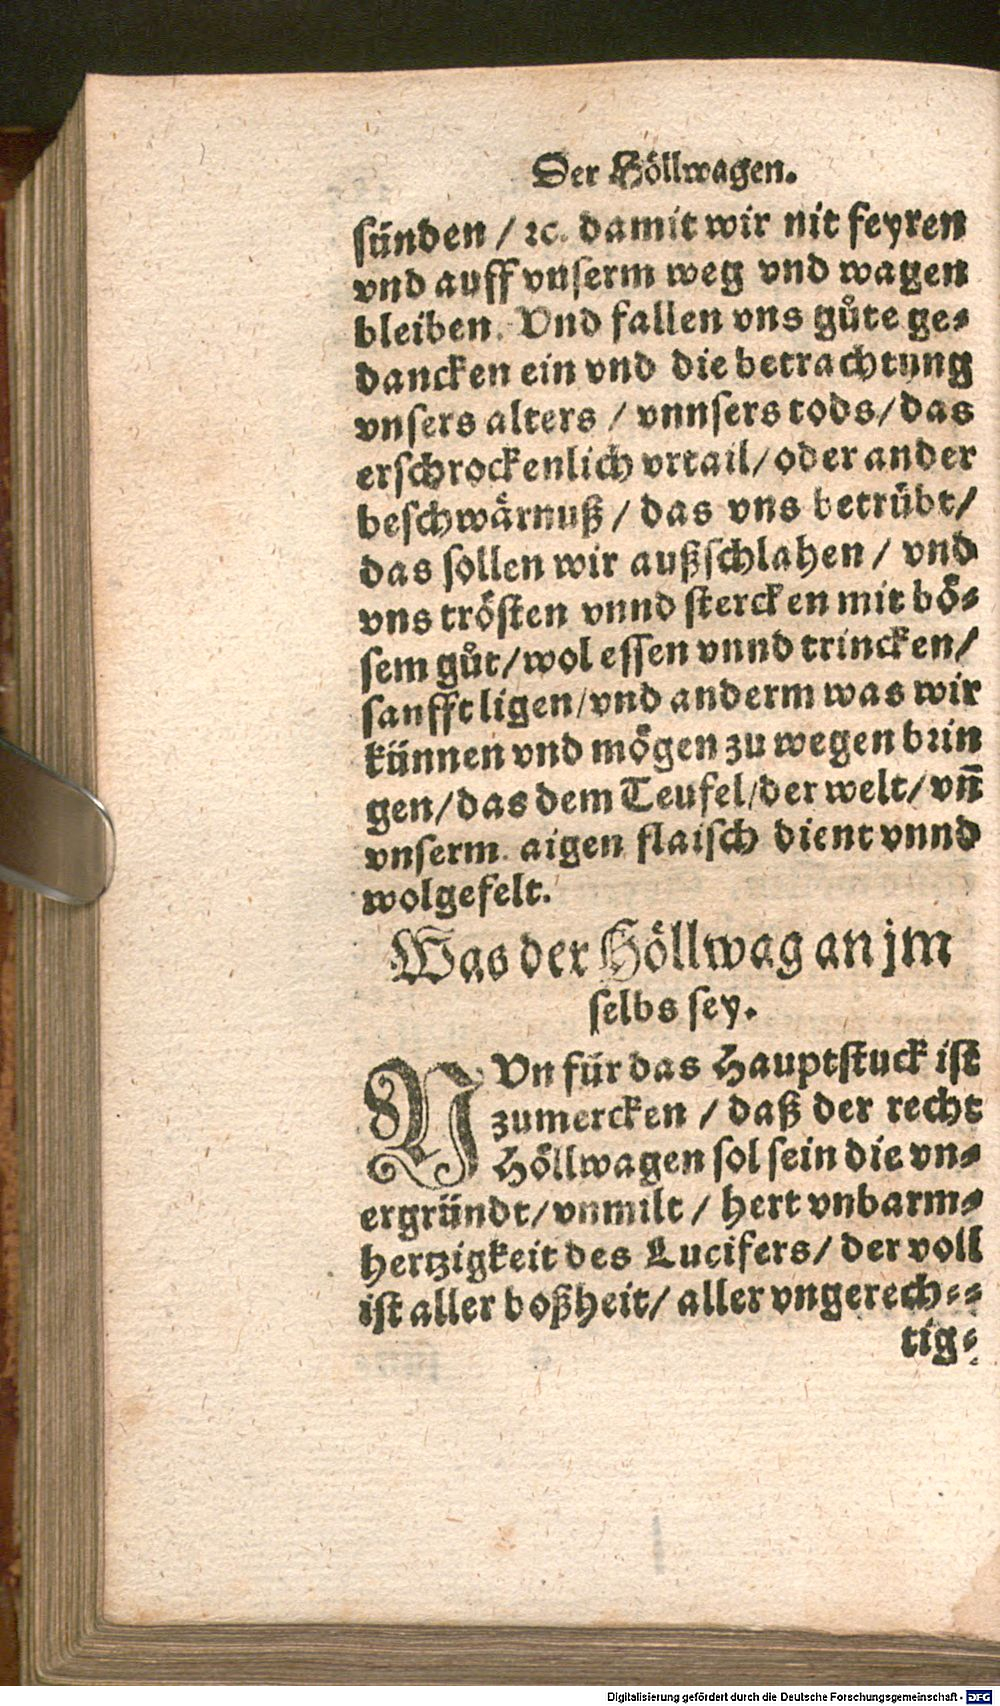 Der Höllwagen.
sünden / ꝛc. damit wir nit feyren
vnd auff vnserm weg vnd wagen
bleiben. Vnd fallen vns gůte ge-
dancken ein vnd die betrachtung
vnsers alters / vnnsers tods / das
erschrockenlich vrtail / oder ander
beschwärnuß / das vns betrübt /
das sollen wir außschlahen / vnd
vns trösten vnnd stercken mit bö-
sem gůt / wol essen vnnd trincken /
sanfft ligen / vnd anderm was wir
künnen vnd mögen zu wegen brin
gen / das dem Teufel / der welt / vñ
vnserm aigen flaisch dient vnnd
wolgefelt.
Was der Höllwag an jm
selbs sey.
NVn für das Hauptstuck ist
zumercken / daß der recht
Höllwagen sol sein die vn-
ergründt / vnmilt / hert vnbarm-
hertzigkeit des Lucifers / der voll
ist aller boßheit / aller vngerech-
tig-
Digitalisierung gefördert durch die Deutsche Forschungsgemeinschaft - DFG